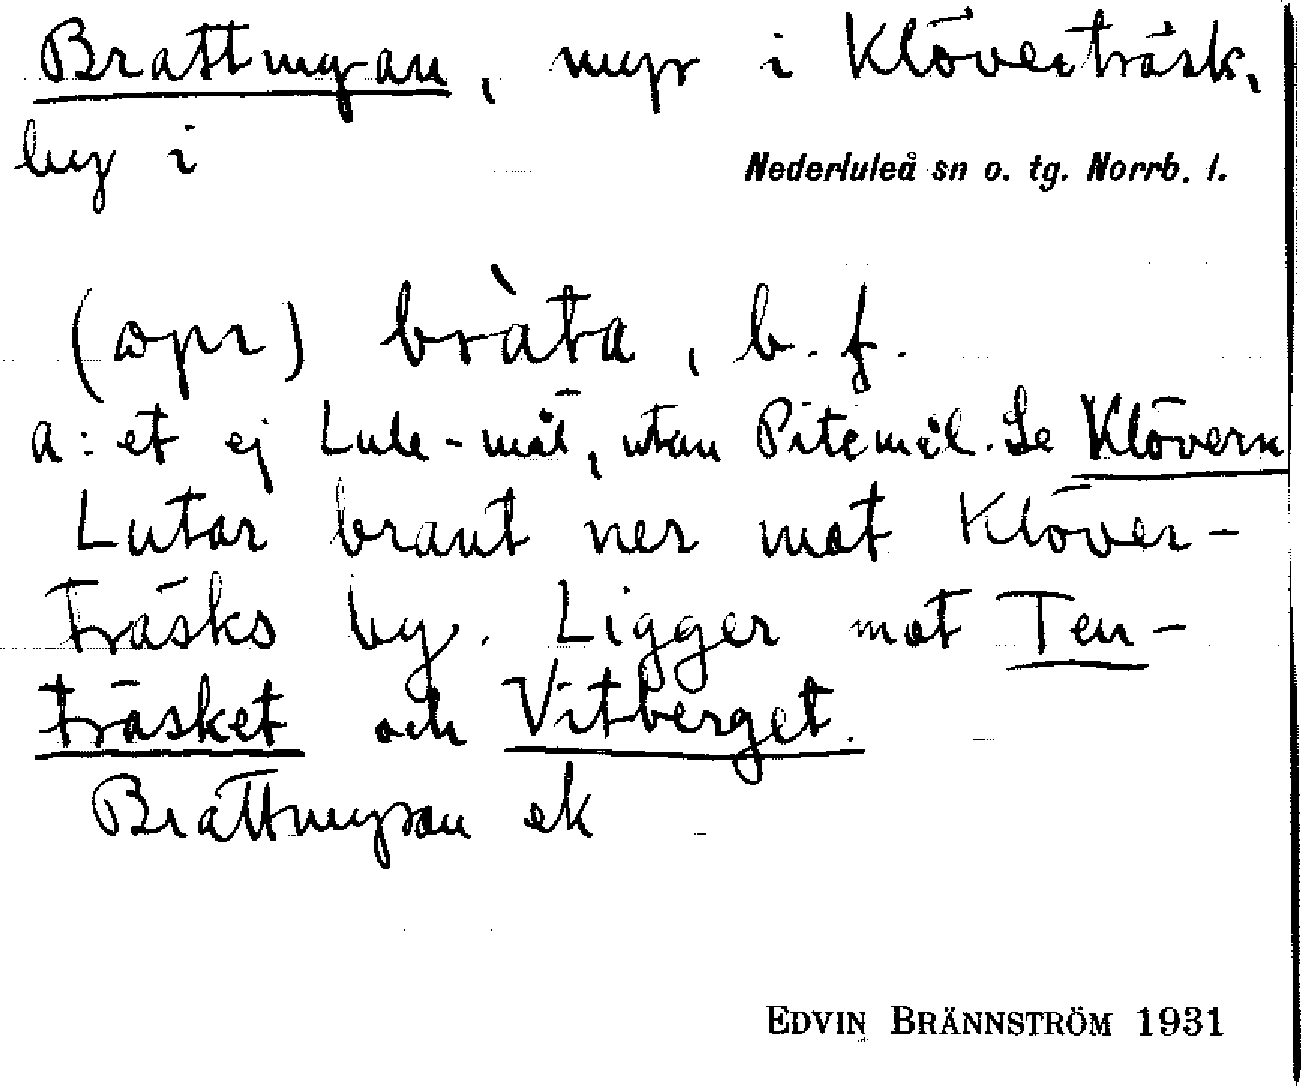 Brattmyran, myr i Klöverträsk,
by i
Nederluleå sn o. tg. Norrb. l.
(opr) bràta, b. f.
a: et ej Lule-mål, utan Pitemål. Se Klövern
Lutar brant ner mot Klöver-
träsks by. Ligger mot Ten-
träsket och Vitberget.
Brattmyran ek
EDVIN BRÄNNSTRÖM 1931